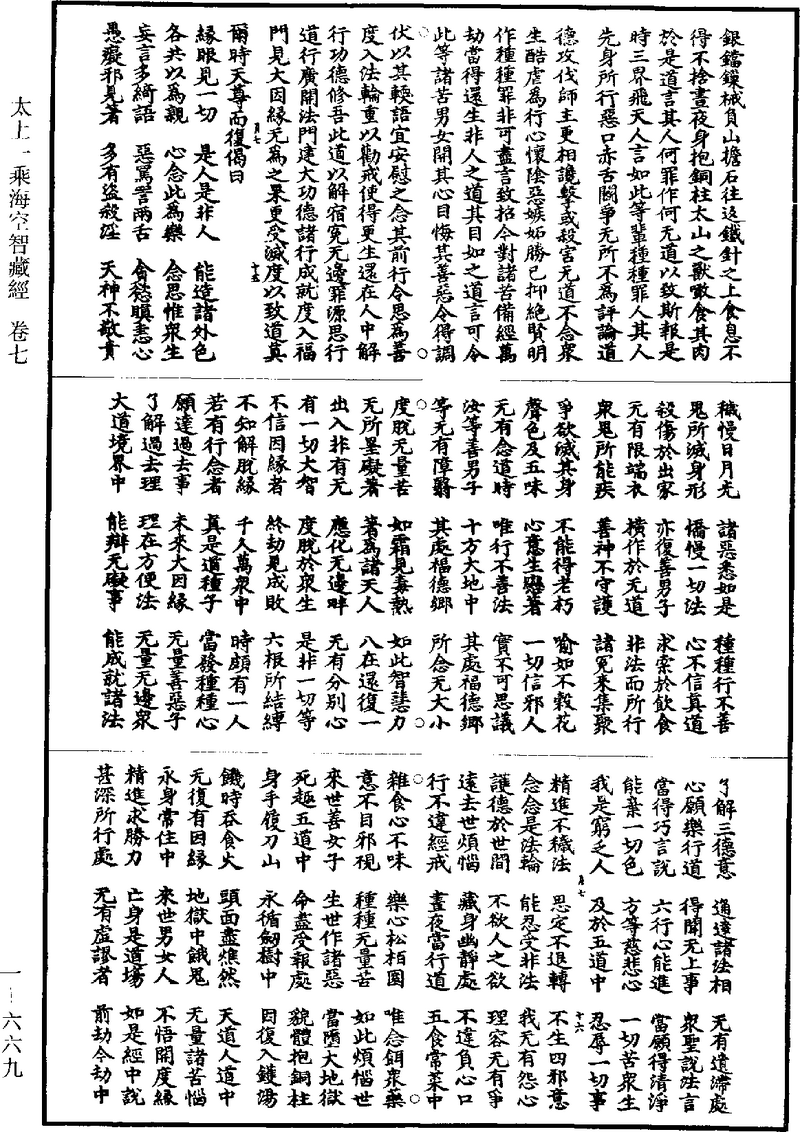 太上一乘海空智藏經　卷七
一—六六九
銀鐺鑊械負山擔石往返鐵針之上食息不
得不捨晝夜身抱銅柱太山之獸噉食其肉
於是道言其人何罪作何无道以致斯報是
時三界飛天人言如此等輩種種罪人其人
先身所行惡口赤舌鬪爭无所不為評論道
德攻伐師主更相譏擊或殺害无道不念衆
生酷虐為行心懷陰惡嫉妬勝己抑絕賢明
作種種罪非可盡言致招今對諸苦備經萬
劫當得還生非人之道其目如之道言可令
此等諸苦男女開其心目悔其善惡令得調
伏以其輭語宜安慰之念其前行令思為善
度入法輪重以勸戒使得更生還在人中解
行功德修吾此道以解宿寃无邊罪源思行
道行廣開法門建大功德諸行成就度入福
門見大因緣无為之果更受滅度以致道真
爾時天尊而復偈曰
緣眼見一切　是人是非人　能造諸外色
各共以為親　心念此為樂　念思惟衆生
妄言多綺語　惡罵詈兩舌　貪慾瞋恚心
愚癡邪見著　多有盜殺淫　天神不敬貴
穢慢日月光　諸惡悉如是　種種行不善
鬼所滅身形　憍慢一切法　心不信真道
殺傷於出家　亦復善男子　求索於飲食
无有限端衣　橫作於无道　非法而所行
衆鬼所能疾　善神不守護　諸寃來集聚
爭欲滅其身　不能得老朽　喻如不榖花
聲色及五味　心意生貽著　一切信邪人
无有念道時　唯行不善法　實不可思議
汝等善男子　十方大地中　其處福德鄉
等无有障翳　其處福德鄉　所念无大小
度脫无量苦　如霜見毒熱　如此智慧力
无所罣礙著　著為諸天人　八在還復一
出入非有无　應化无邊畔　无有分別心
有一切大智　度脫於衆生　是非一切等
不信因緣者　終劫見成敗　六根所結縛
不知解脫緣　千人萬衆中　時頗有一人
若有行念者　真是道種子　當發種種心
願達過去事　未來大因緣　无量善惡子
了解過去理　理在方便法　无量无邊衆
大道境界中　能辯无礙事　能成就諸法
了解三德意　通達諸法相　无有遺滯處
心願樂行道　得聞无上事　衆聖說法言
當得巧言說　六行心能進　當願得清淨
能棄一切色　方等慈悲心　一切苦衆生
我是窮乏人　及於五道中　忍辱一切事
精進不穢法　思定不退轉　不生四邪意
念念是法輪　能忍受非法　我无有怨心
護德於世間　不欲人之欲　理容无有爭
遠去世煩惱　藏身幽靜處　不違負心口
行不違經戒　晝夜當行道　五食常菜中
雜食心不味　樂心松栢園　唯念餌衆藥
意不目邪視　種種无量苦　如此煩惱世
來世善女子　生世作諸惡　當墮大地獄
死趣五道中　命盡受報處　貌體抱銅柱
身手履刀山　永循劒樹中　因復入鑊湯
饑時吞食火　頭面盡燋然　天道人道中
无復有因緣　地獄中餓鬼　无量諸苦惱
永身常住中　來世男女人　不悟開度緣
精進求勝力　亡身是道場　如是經中說
甚深所行處　无有虛謬者　前劫今劫中